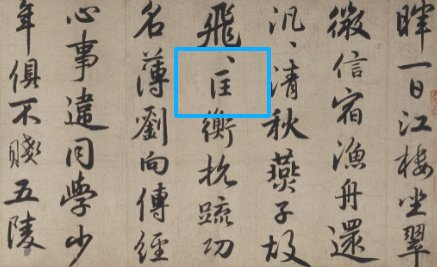 暉一日江樓坐翠
微信宿漁舟還
汎〻清秋燕子故
飛〻匡衡抗疏功
名薄劉向傳經
心事違同學少
年俱不賤五陵